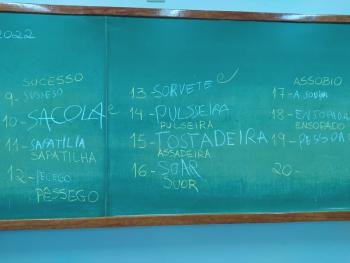 2022
SUCESSO
9- SUSESO
10- SACOLA
11- SAPATILIA
SAPATILHA
12- PECEGO
PÊSSEGO
13- SORVETE
14- PULSSEIRA
PULSEIRA
15- TOSTADEIRA
ASSADEIRA
16- SOAR
SUOR
ASSOBIO
17-
18- ENSOPADO
ENSOPADO
19- PESSOA
20-